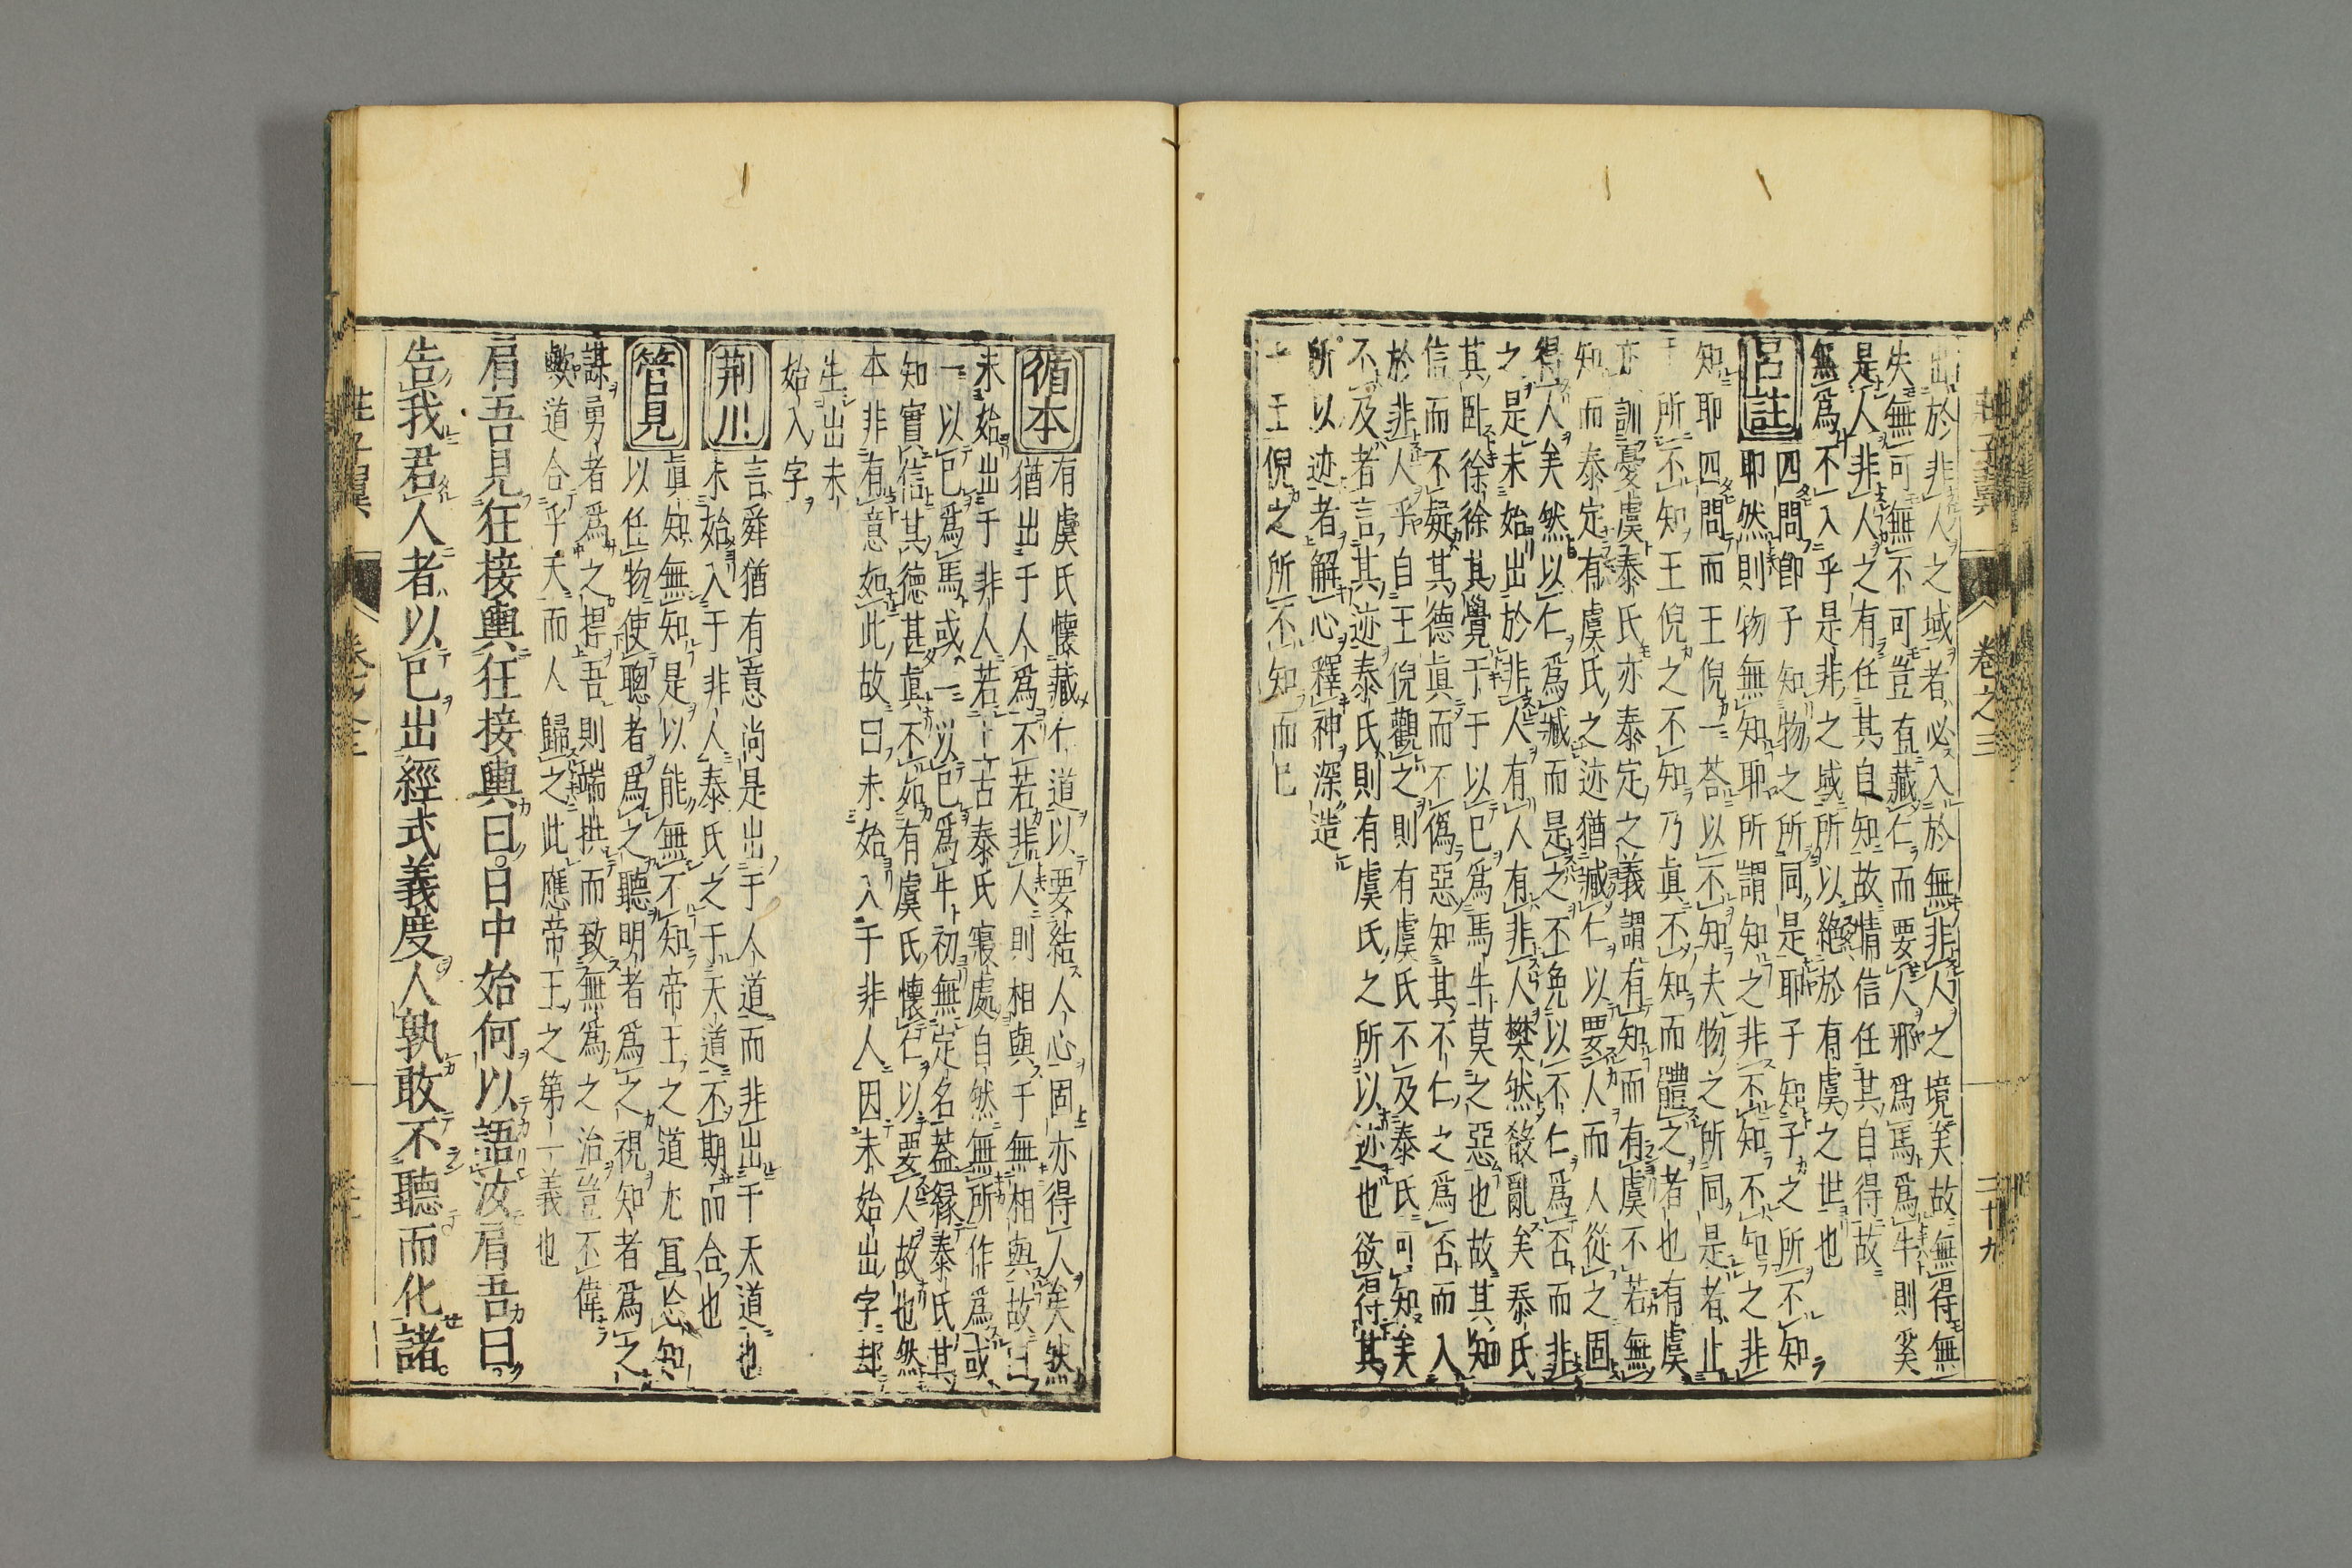 莊子翼 卷之三 二十九
出於非人之域者必入於無非人之境矣故無得無
失無可無不可豈直藏仁而要人邪為馬為牛則奚
是人非人之有任其自知故情信任其自得故
無為不入乎是非之域所以絶於有虞之世也
呂註 四問即子知物之所同是耶子知子之所不知
耶然則物無知耶所謂知之非不知不知之非
知耶四問而王倪一荅以不知夫物之所同是者止
于所不知王倪之不知乃眞不知而體之者也有虞
亦訓憂虞泰氏亦泰定之義謂有知而有虞不若無
知而泰定有虞氏之迹猶臧仁以要人而人從之固
得人矣然以仁為臧而是之不免以不仁為否而非
之是未始出於非人有人有非人樊然殽亂矣泰氏
其臥徐徐其覺于于以已為馬牛莫之惡也故其知
信而不疑其德眞而不偽惡知其不仁之為否而入
於非人乎自王倪觀之則有虞氏不及泰氏可知矣
不及者言其迹泰氏則有虞氏之所以迹也欲得其
所以迹者解心釋神深造
于王倪之所不知而已
循本 有虞氏懷藏仁道以要結人心固亦得人矣然
猶出于人為不若非人則相與于無相與故曰
未始出于非人若上古泰氏寢處自然無所作為或
一以已為馬或一以已為牛初無定名蓋縁泰氏其
知實信其德甚眞不如有虞氏懷仁以要人故也然
本非有意如此故曰未始入于非人因未始出字却
生出未
始入字
荆川 言舜猶有意尚是出于人道而非出于天道也
未始入于非人泰氏之于天道不期而合也
管見 眞知無知是以能無不知帝王之道尤宜忘知
以任物使聰者為之聽明者為之視知者為之
謀勇者為之捍吾則端拱而致無為之治豈不偉
歟道合乎天而人歸之此應帝王之第一義也
肩吾見狂接輿狂接輿曰日中始何以語汝肩吾曰
告我君人者以已出經式義度人孰敢不聽而化諸